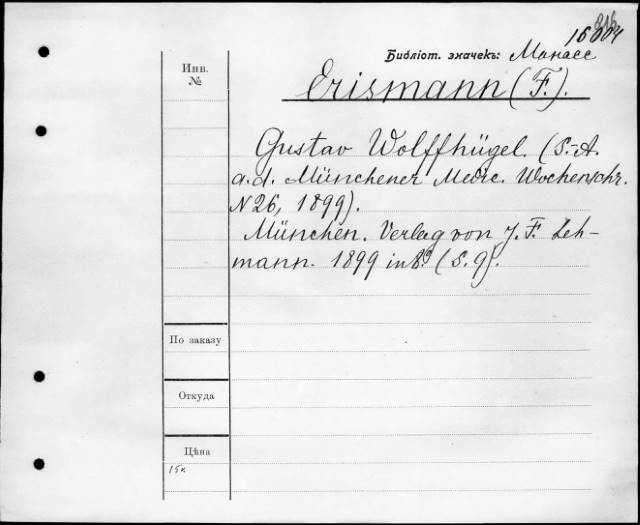 Инв.
№
Библіот. значекъ: Манасс
Erismann (F.).
Gustav Wolffhügel. (S.-A.
a. d. Münchener Medic. Wochenschr.
N 26, 1899).
München. Verlag von J. F. Leh-
mann. 1899 in 8.º (S. 9).
По заказу
Откуда
Цѣна
15к